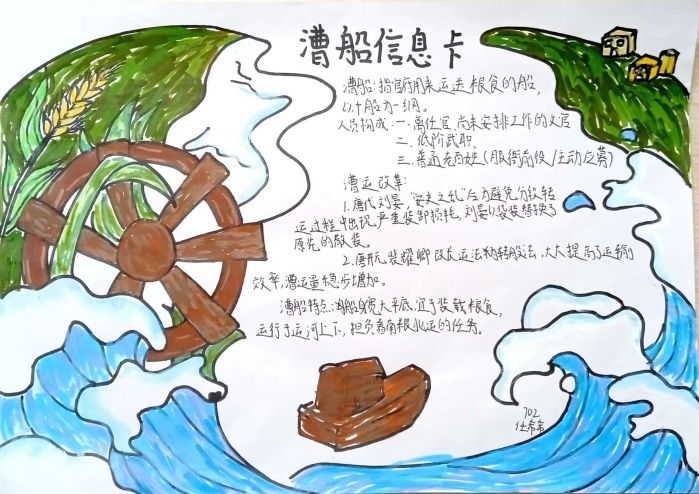 漕船信息卡
漕船:指官府用来运送粮食的船,
以十船为一纲。
人员构成:一、离任官、尚未安排工作的文官
二、低阶武职、
三、普通老百姓(服衙前役/主动应募)
漕运改革:
1.唐代刘晏,"安史之乱"后为避免分段转
运过程中出现严重装卸损耗,刘晏以袋装替换了
原先的散装。
2.唐朝裴耀卿改长运法为转般法,大大提高了运输的
效率,漕运量稳步增加。
漕船特点:船身宽大平底,宜于装载粮食,
运行于运河上下,担负着南粮北运的任务。
702